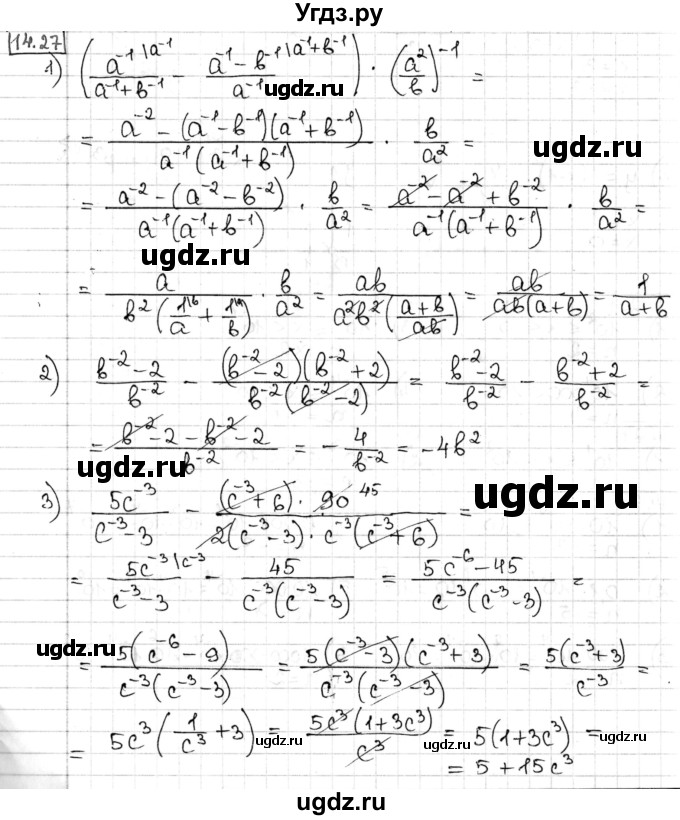 Угдз.ру
14.27
1) (a⁻¹ \a⁻¹ / (a⁻¹+b⁻¹) − (a⁻¹−b⁻¹) \a⁻¹+b⁻¹ / a⁻¹) · (a²/b)⁻¹ =
ugdz.ru
= (a⁻² − (a⁻¹−b⁻¹)(a⁻¹+b⁻¹)) / (a⁻¹(a⁻¹+b⁻¹)) · b/a² =
ugdz.ru
= (a⁻² − (a⁻²−b⁻²)) / (a⁻¹(a⁻¹+b⁻¹)) · b/a² = (a⁻²−a⁻²+b⁻²) / (a⁻¹(a⁻¹+b⁻¹)) · b/a² =
ugdz.ru
= a / (b²(1\b/a + 1\a/b)) · b/a² = ab / (a²b²((a+b)/ab)) = ab / (ab(a+b)) = 1/(a+b)
2) (b⁻²−2)/b⁻² − (b⁻²−2)(b⁻²+2) / (b⁻²(b⁻²−2)) = (b⁻²−2)/b⁻² − (b⁻²+2)/b⁻² =
= (b⁻²−2−b⁻²−2)/b⁻² = −4/b⁻² = −4b²
ugdz.ru
ugdz.ru
3) 5c⁻³/(c⁻³−3) − (c⁻³+6)·90 45 / (2(c⁻³−3)·c⁻³(c⁻³+6)) =
= 5c⁻³ \c⁻³ / (c⁻³−3) − 45/(c⁻³(c⁻³−3)) = (5c⁻⁶−45)/(c⁻³(c⁻³−3)) =
ugdz.ru
ugdz.ru
= 5(c⁻⁶−9)/(c⁻³(c⁻³−3)) = 5(c⁻³−3)(c⁻³+3)/(c⁻³(c⁻³−3)) = 5(c⁻³+3)/c⁻³ =
= 5c³(1/c³ + 3) = 5c³(1+3c³)/c³ = 5(1+3c³) =
ugdz.ru ugdz.ru ugdz.ru
= 5 + 15c³
ugdz.ru